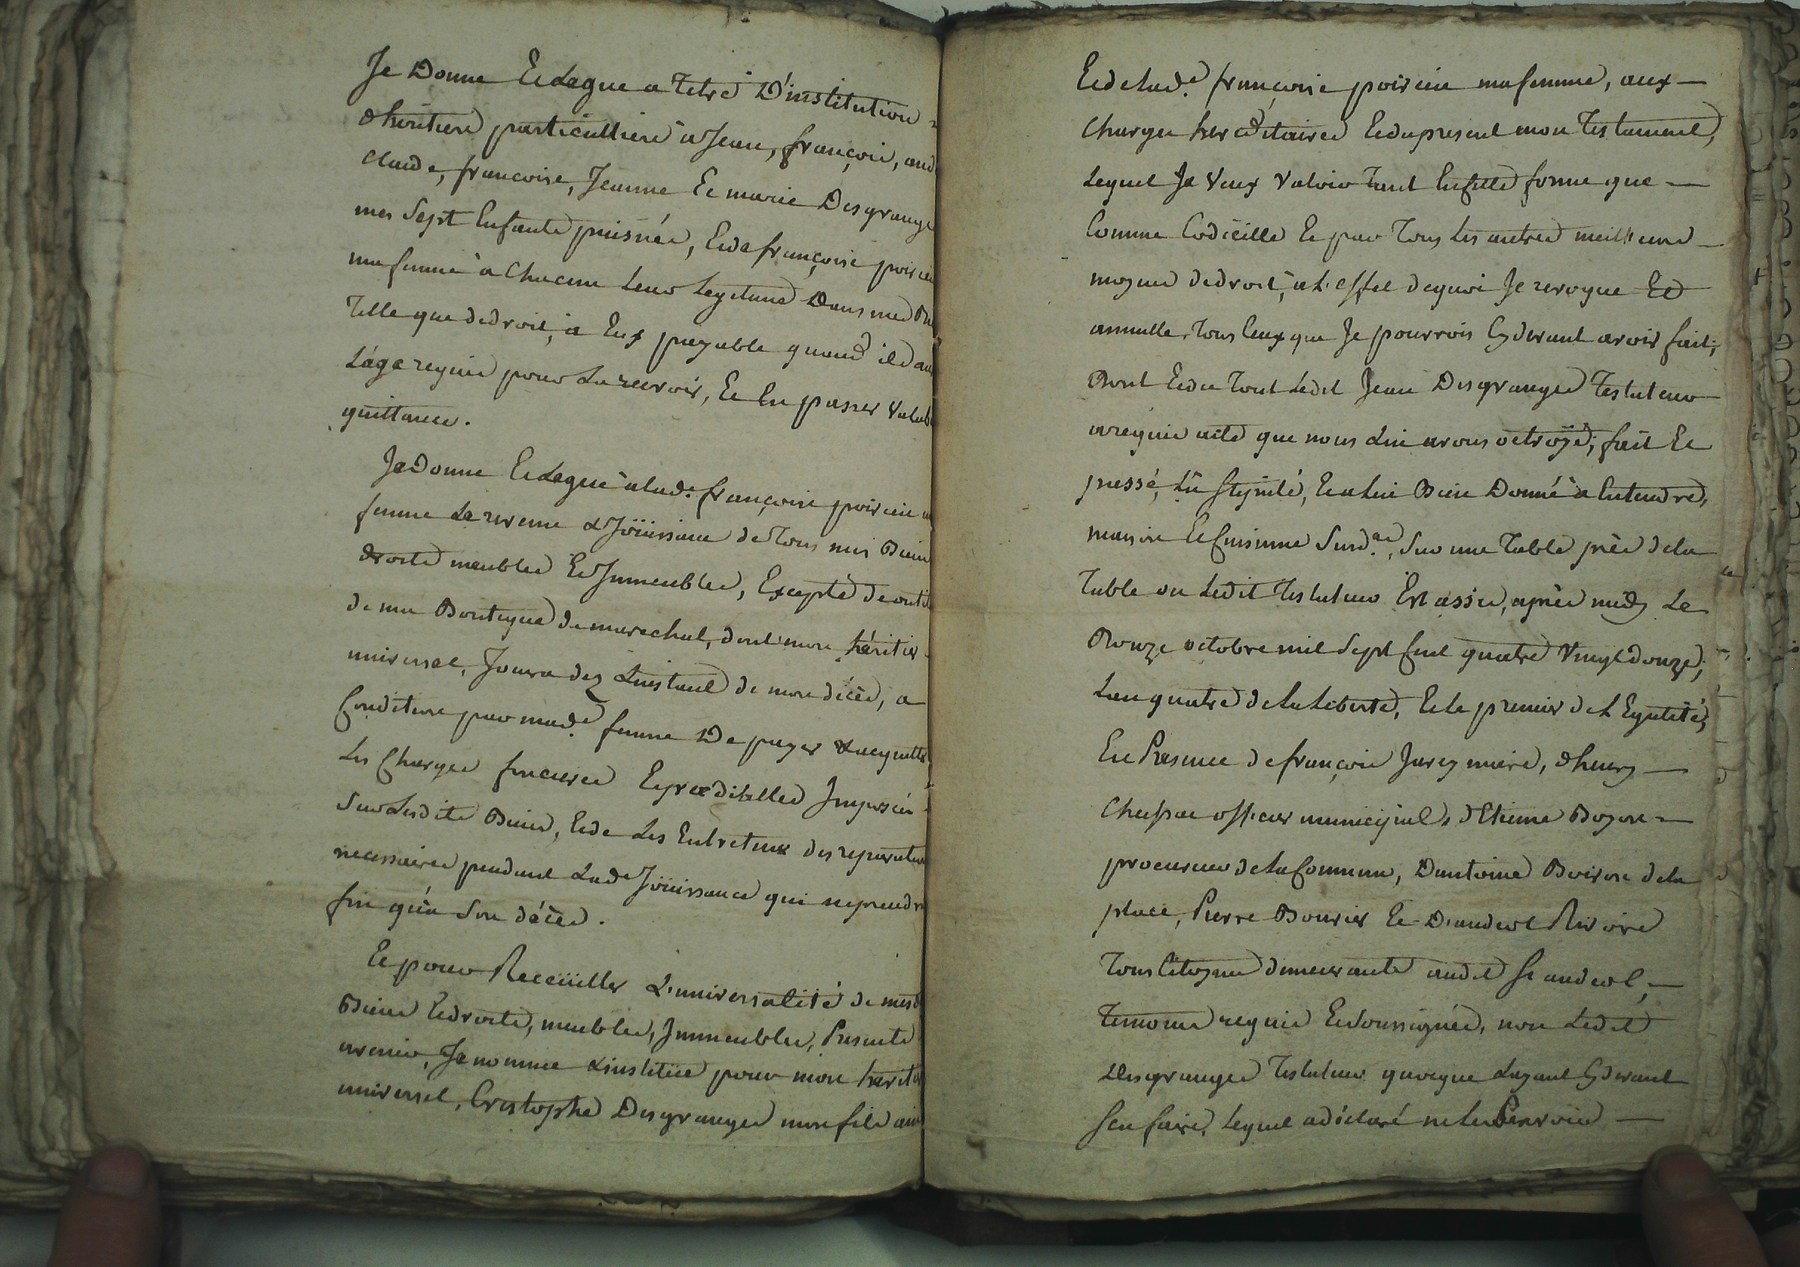 Je Donne Et Legue a titre D'institution
d'héritiers particulliere à Jean, françois, and
claude, francoise, Jeanne Et marie Desgrange
mes sept Enfants puisnés, Et de françoise poirieu
ma femme à chacun leur Legitime Dans mes Bi
telle que de droit, à Eux payable quand ils au
L'age requis pour La recevoir, Et En passer valab
quittance.
Je Donne Et Legue à lad.e françoise poirieu
femme Les revenu & Joüissance de tous mes Biens
droits meubles Et Immeubles, Excepté des outils
de ma Boutique de marechal, dont mon héritier
universel, Joura dez L'instant de mon décès, a
Condition par mad.e femme De payer & acquitter
Les Charges foncieres Et præditalles Imposées
Sur Lesdits Biens, Et de Les Entretenir des reparations
necessaires pendant Lad.e Joüissance qui ne prendra
fin qu'a Son décès.
Et pour Recëuiller L'universalité de mesd
Biens Et droits, meubles, Immeubles, Presents
avenir, Je nomme & institüe pour mon héritier
universel, Cristophe Desgranges mon fils ainé
Et de Lad.e françoise poirieu ma femme, aux
Charges hereditaires Et du present mon Testament,
Lequel Je Veux Valoir tant En cette forme que
Comme Codicille Et par tous les autres meilleurs
moyens de droit, à L'effet de quoi Je revoque Et
annulle tous Ceux que Je pourrois Cy devant avoir fait;
Dont Et du tout Ledit Jean Desgranges Testateur
a requis acte que nous Lui avons octroÿé; fait Et
passé, Lû stipulé, Et a Lui Bien Donné à Entendre,
maison Et Cuisinne Susd.te, Sur une table près de la
table ou Ledit testateur Est assis, après midy Le
onze octobre mil Sept Cent quatre Vingt douze,
L'an quatre de La Liberté, Et le premier de L'Egalité,
En Presence de françois Jurey maire, d'henry
officier municipal, d'Etienne Bozon
procureur de La Commune, D'antoine Boiron de la
place, Pierre Bourier Et D'andeol Rivoire
tous Citoyens demeurants audit St andeol,
temoins requis Et Soussignés, non Ledit
Desgranges testateur quoique L'ayant Cy devant
Sçu faire, Lequel a déclaré ne Le Sçavoir